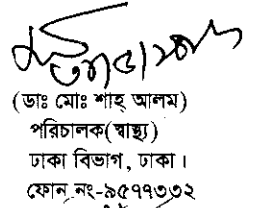 (ডাঃ মোঃ শাহ্ আলম)
পরিচালক(স্বাস্থ্য)
ঢাকা বিভাগ, ঢাকা।
ফোন নং-৯৫৭৭৩৩২